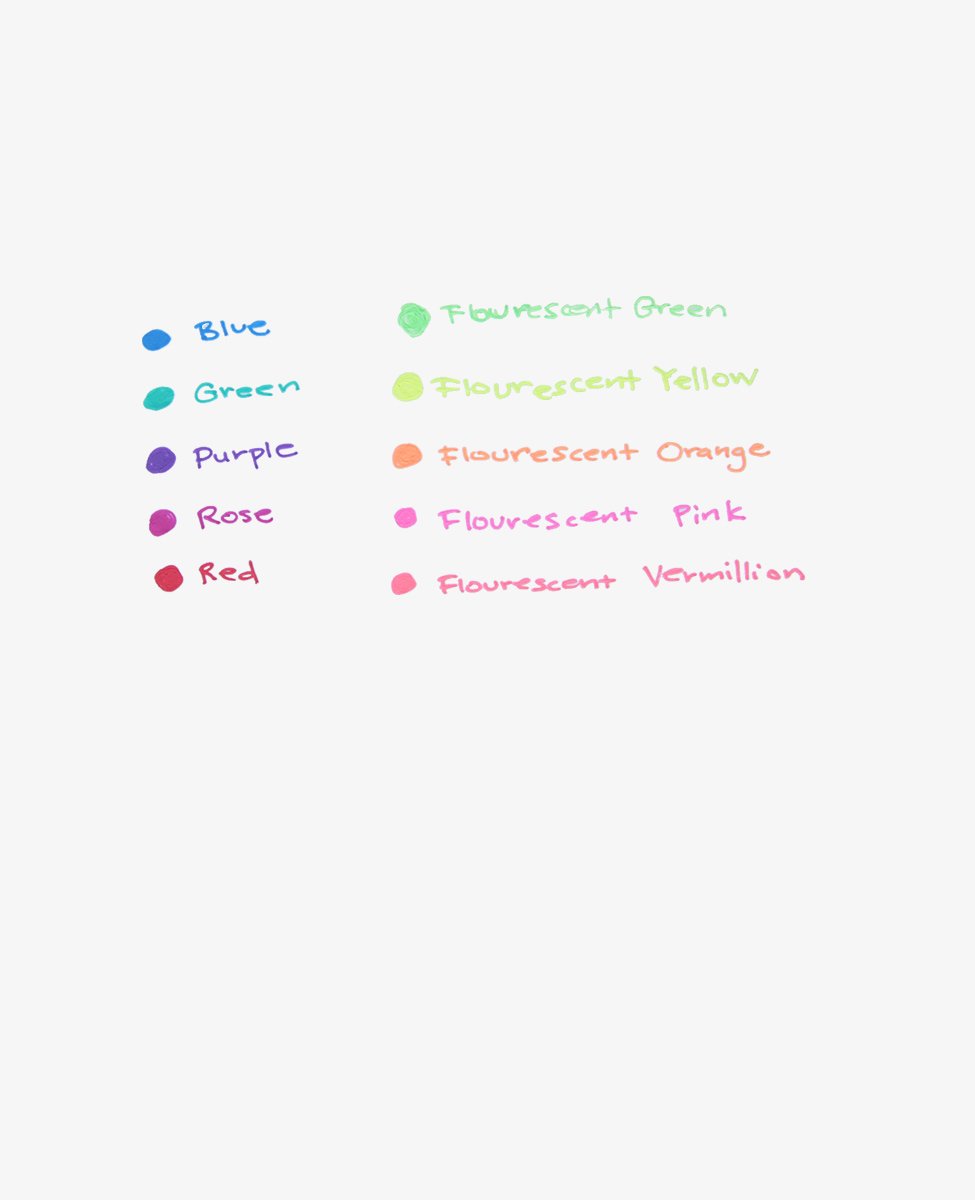 Blue
Green
Purple
Rose
Red
Flourescent Green
Flourescent Yellow
Flourescent Orange
Flourescent Pink
Flourescent Vermillion